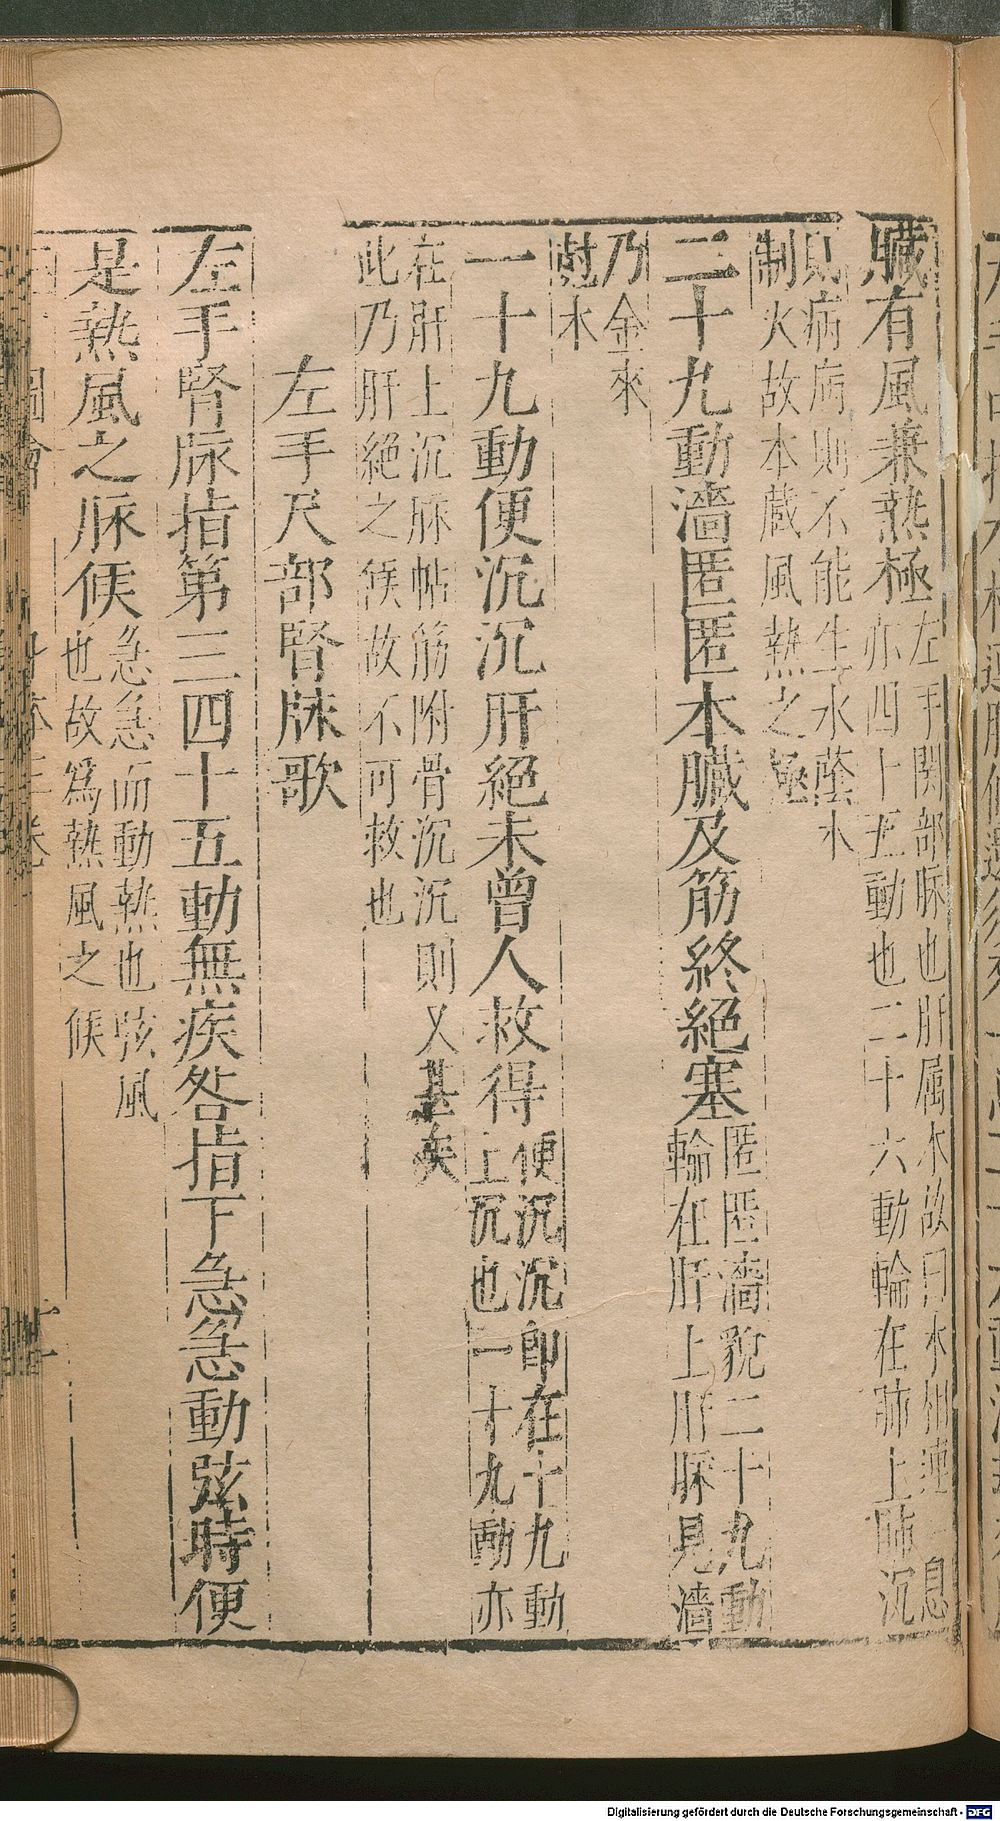 臟有風兼熱極左手関部脉也肝属木故曰木
亦四十五動也二十六動輪在肺上肺沉
則病病則不能生水䕃木
制火故本蔵風熱之極
二十九動濇匿匿本臓及筋終絕塞匿匿濇貌二十九動
輪在肝上肝脉見濇
乃金來
尅木
一十九動便沉沉肝絕未曾人救得便沉沉即在十九動
上沉也一十九動亦
在肝上沉脉帖筋附骨沉沉則又甚矣
此乃肝絕之候故不可救也
左手尺部腎脉歌
左手腎脉指第三四十五動無疾咎指下急急動弦時便
是熱風之脉候急急而動熱也弦風
也故為熱風之候
Digitalisierung gefördert durch die Deutsche Forschungsgemeinschaft - DFG